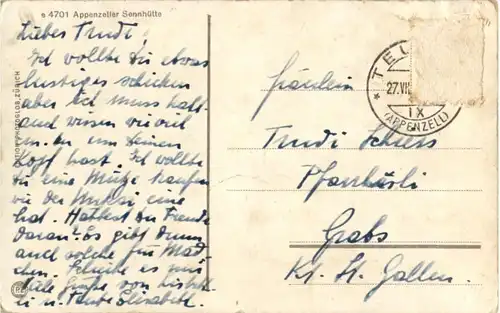 4701 Appenzeller Sennhütte
Liebes Trudi,
Ich wollte Dir etwas
lustiges schicken
aber ich muss halt
und wissen wie viel
um Deinen
Kopf hast. Ich wollte
dir eine Mütze kaufen
wie der eine
hat. Hättest Du Freude
daran? Es gibt
auch solche für Mäd
chen. Schreibe es mir
viele Grüße von
u. Tante Elisabeth.
TEU
27.VII
IX
(APPENZELL)
Fräulein
Trudi Schiess
Pfarrhüsli
Grabs
Kt. St. Gallen.
PHOTOGLOB, ZÜRICH